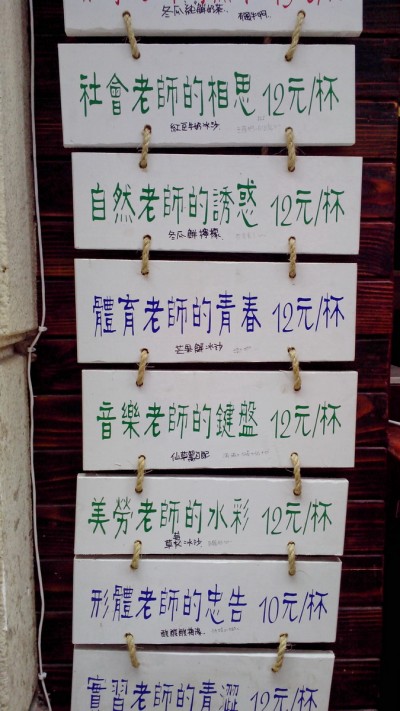 社會老師的相思 12元/杯
紅豆牛奶冰沙
自然老師的誘惑 12元/杯
冬瓜鮮檸檬
體育老師的青春 12元/杯
芒果鮮冰沙
音樂老師的鍵盤 12元/杯
美勞老師的水彩 12元/杯
草莓冰沙
形體老師的忠告 10元/杯
實習老師的青澀 12元/杯